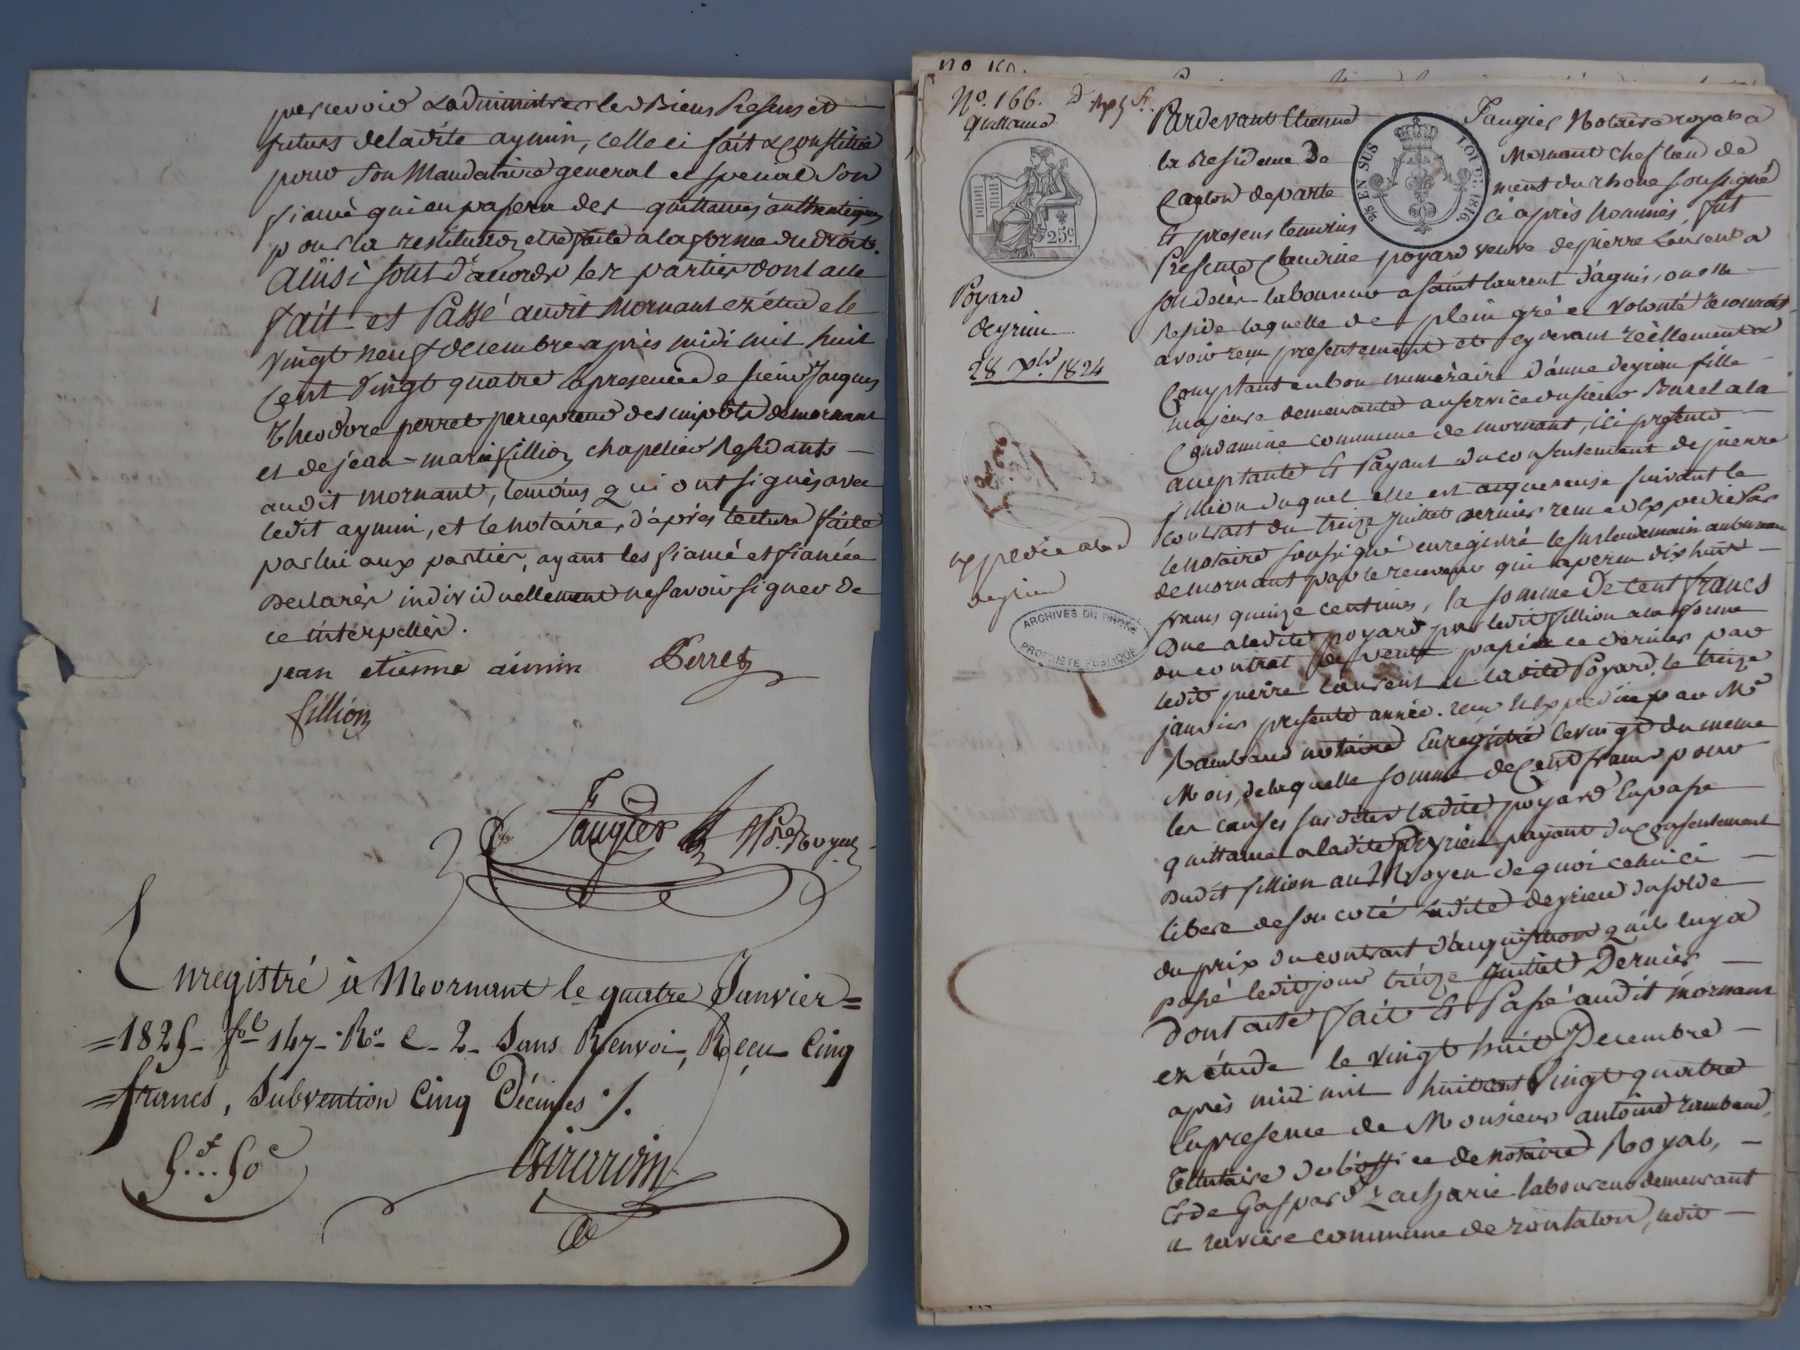 percevoir & administrer les Biens presens et
futurs de ladite aymin, celle ci fait & constitue
pour son Mandataire general et special son
fiancé qui en passera des quittances authentiques
pour la restitution etre faite a la forme du droit.
Ainsi sont d'accords les parties dont acte
fait et Passé audit Mornant en étude le
vingt neuf decembre après midi mil huit
Cent vingt quatre a presence de sieurs Jacques
Théodore perret percepteur des impôts de mornant
et de jean-marie fillion chapelier Residants
audit mornant, temoins qui ont signés avec
ledit aymin, et le notaire, d'après lecture faite
par lui aux parties, ayant les fiancé et fiancée
Declarés individuellement ne savoir signer de
ce interpellés.
jean etienne aimin Perret
fillion
Faugier Nre. Royal
Enregistré à Mornant le quatre Janvier =
=1825- fol 147- Ro- C- 2- Sans Renvoi, Reçu Cinq
=francs, Subvention Cinq Décimes ./.
5.f 50c
Girardin
No. 166.
quittance
25c
Poyard
deyrieu
28 Xbre. 1824
expediée a lad
deyrieu
ARCHIVES DU RHONE
PROPRIÉTÉ PUBLIQUE
25 EN SUS LOI DE 1816.
Pardevant Etienne Faugier Notaire royal a
la Residence de Mornant chef lieu de
Canton departement du rhone soussigné
Et presens temoins ci après nommés, fut
Presente Claudine poyard veuve de pierre Laurent a
son décès laboureur a saint laurent d'agnis, ou elle
Reside laquelle de plein gré et volonté reconnait
avoir reçu presentement et cydevant réellement &
Comptant en bon numéraire d'anne deyrieu fille
majeure demeurante au service du sieur Burel a la
Condamine commune de mornant, ici presente
acceptante Et Payant du consentement de pierre
fillion duquel elle est acquereuse suivant le
contrait du treize juillet dernier reçu & Expedié par
le notaire soussigné enregistré le surlendemain au bureau
de mornant par le receveur qui a perçu dix huit
francs quinze centimes, la somme De Cent francs
Due a ladite poyard par ledit fillion a la forme
du contrat de vente passé a ce dernier par
ledit pierre Laurent et ladite Poyard le treize
janvier presente année. reçu & Expedié par Me.
Rambaud notaire Enregistré le vingt du meme
Mois, de laquelle somme de Cent francs pour
les causes susdites ladite poyard En passe
quittance a ladite Deyrieu payant du Consentement
Dudit fillion au Moyen de quoi celui ci
libere de son coté ladite deyrieu du solde
du prix du contrat d'acquisition qu'il luy a
passé ledit jour treize juillet Dernier
Dont acte fait Et Passé audit mornant
en étude le vingt huit Decembre
après midi mil huit cent Vingt quatre
En presence de Monsieur antoine rambaud,
Titulaire de l'office de notaire Royal,
Et de Gaspard Zacharie laboureur demeurant
a ravière commune de rontalon, ledit